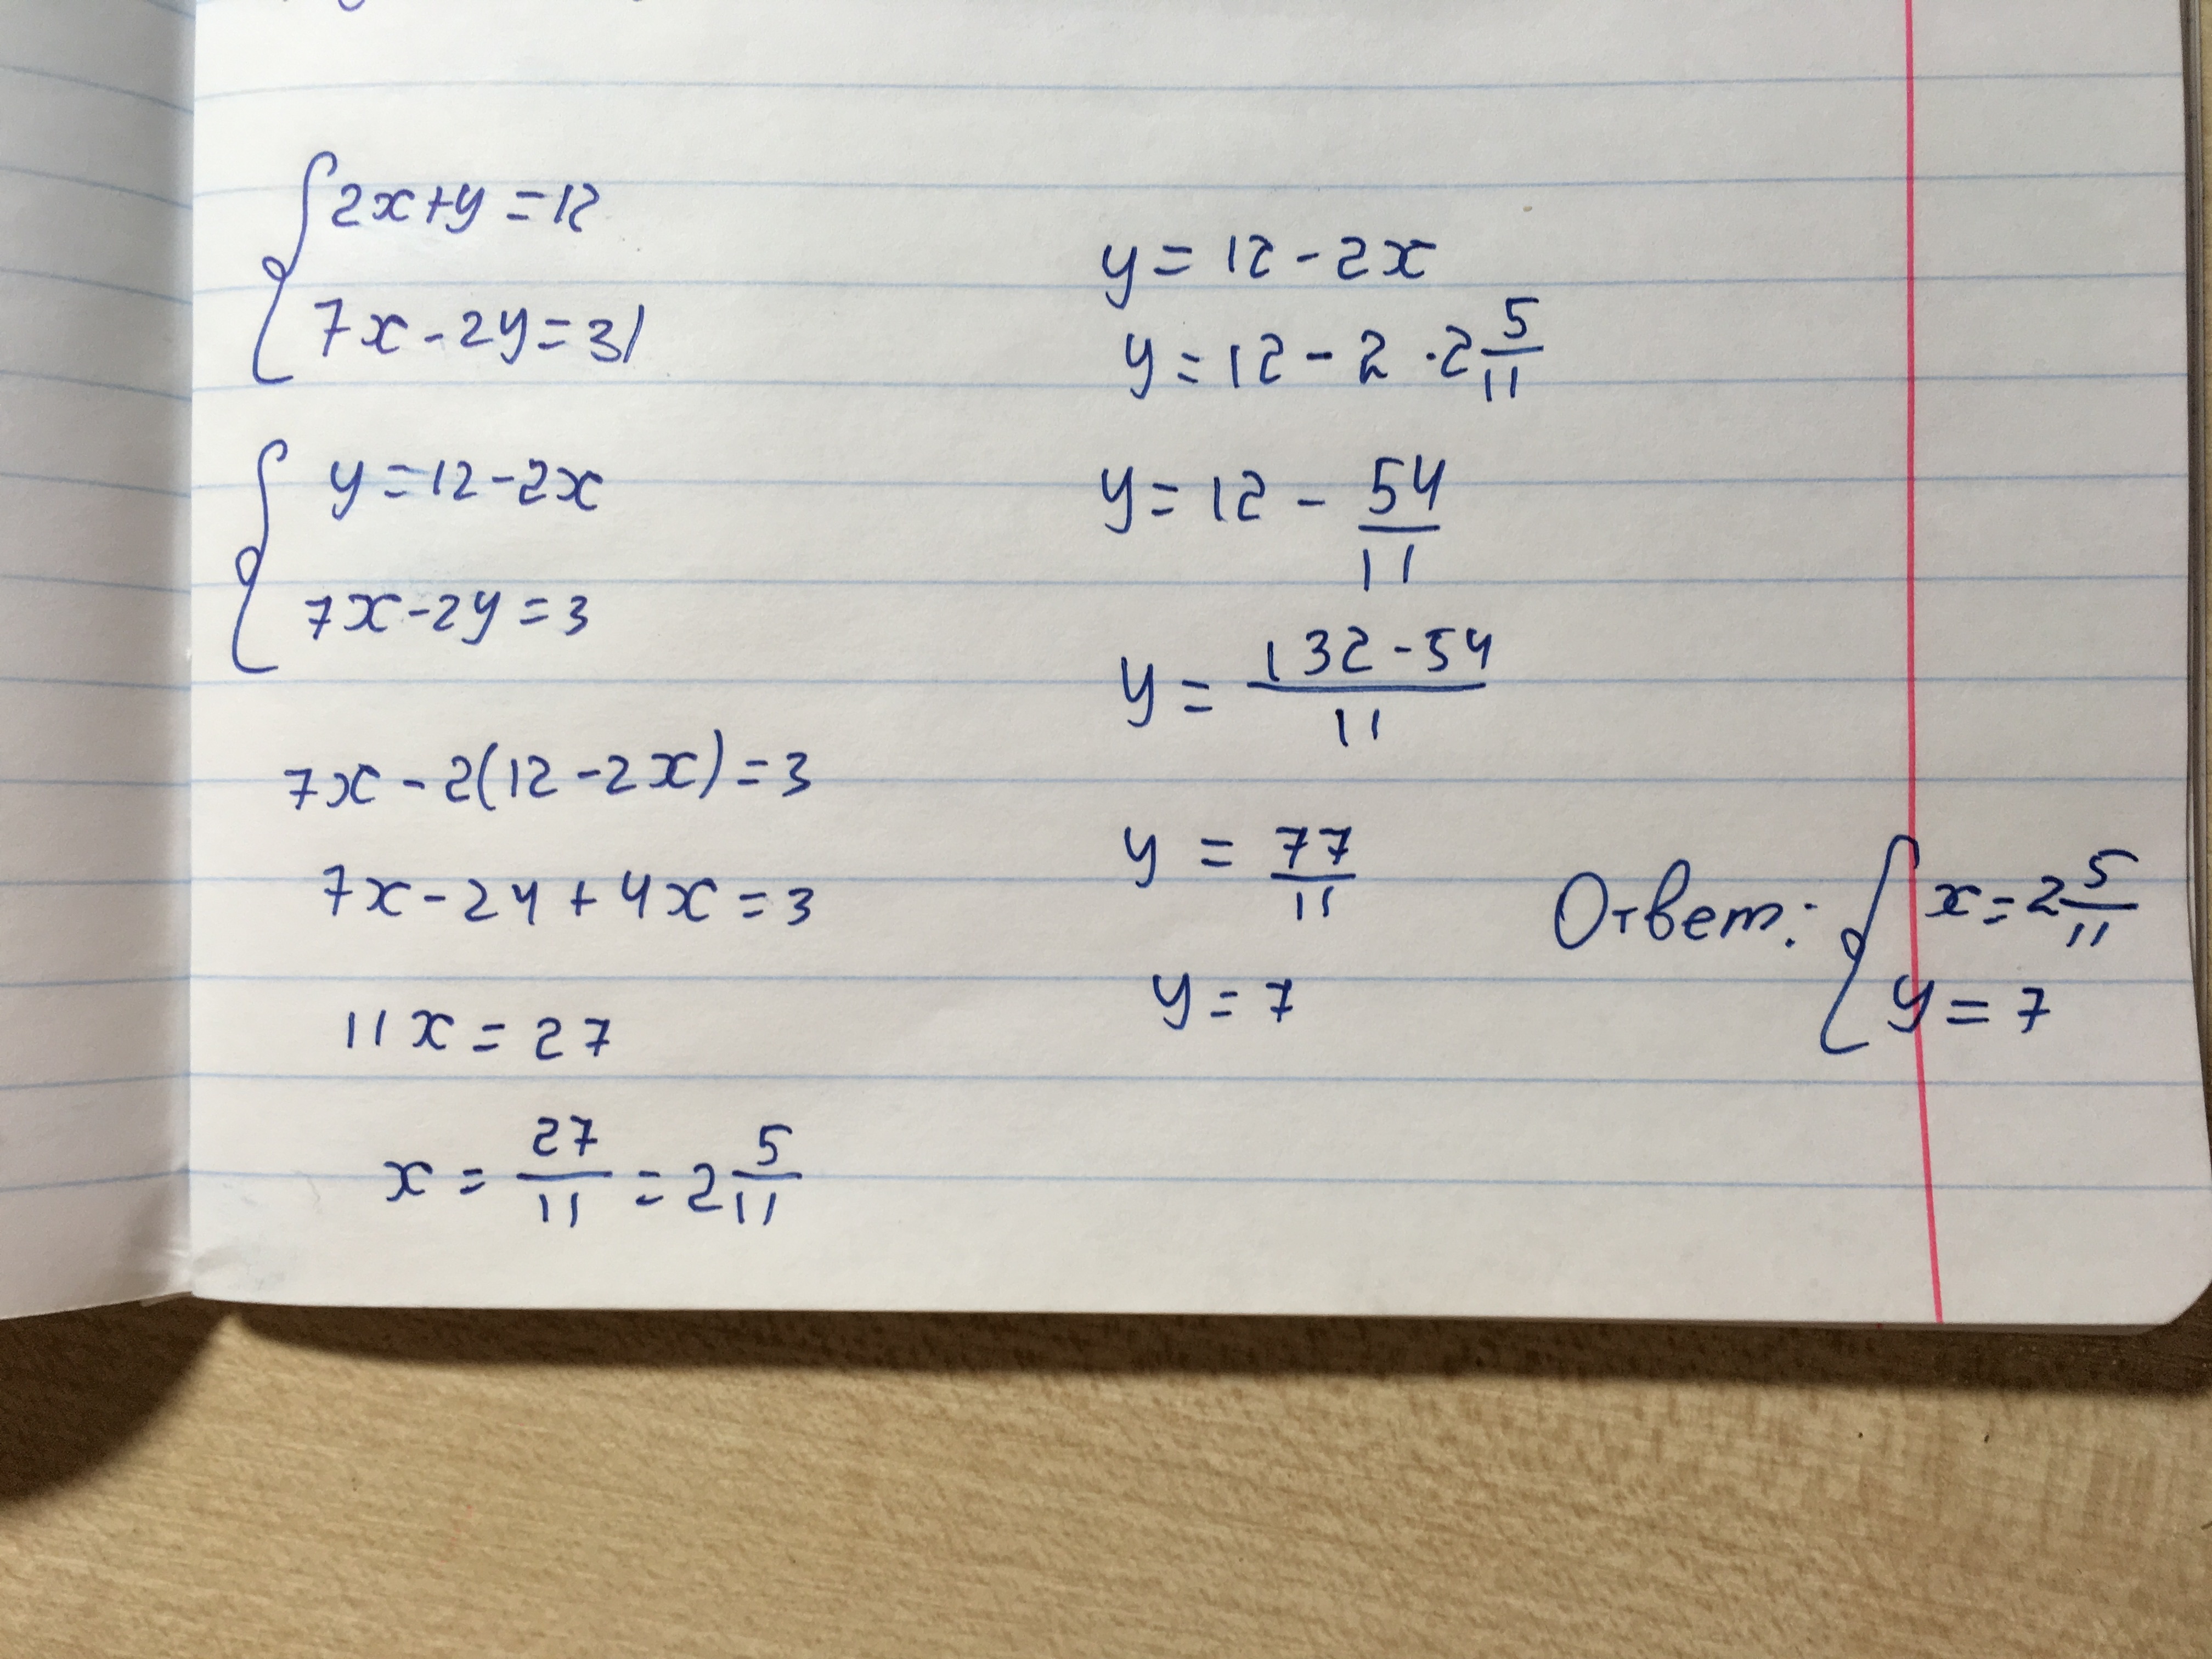 2x+y=12
7x-2y=31
y=12-2x
7x-2y=3
7x-2(12-2x)=3
7x-24+4x=3
11x=27
x=27/11=2 5/11
y=12-2x
y=12-2·2 5/11
y=12-54/11
y=(132-54)/11
y=77/11
y=7
Ответ: { x=2 5/11
y=7